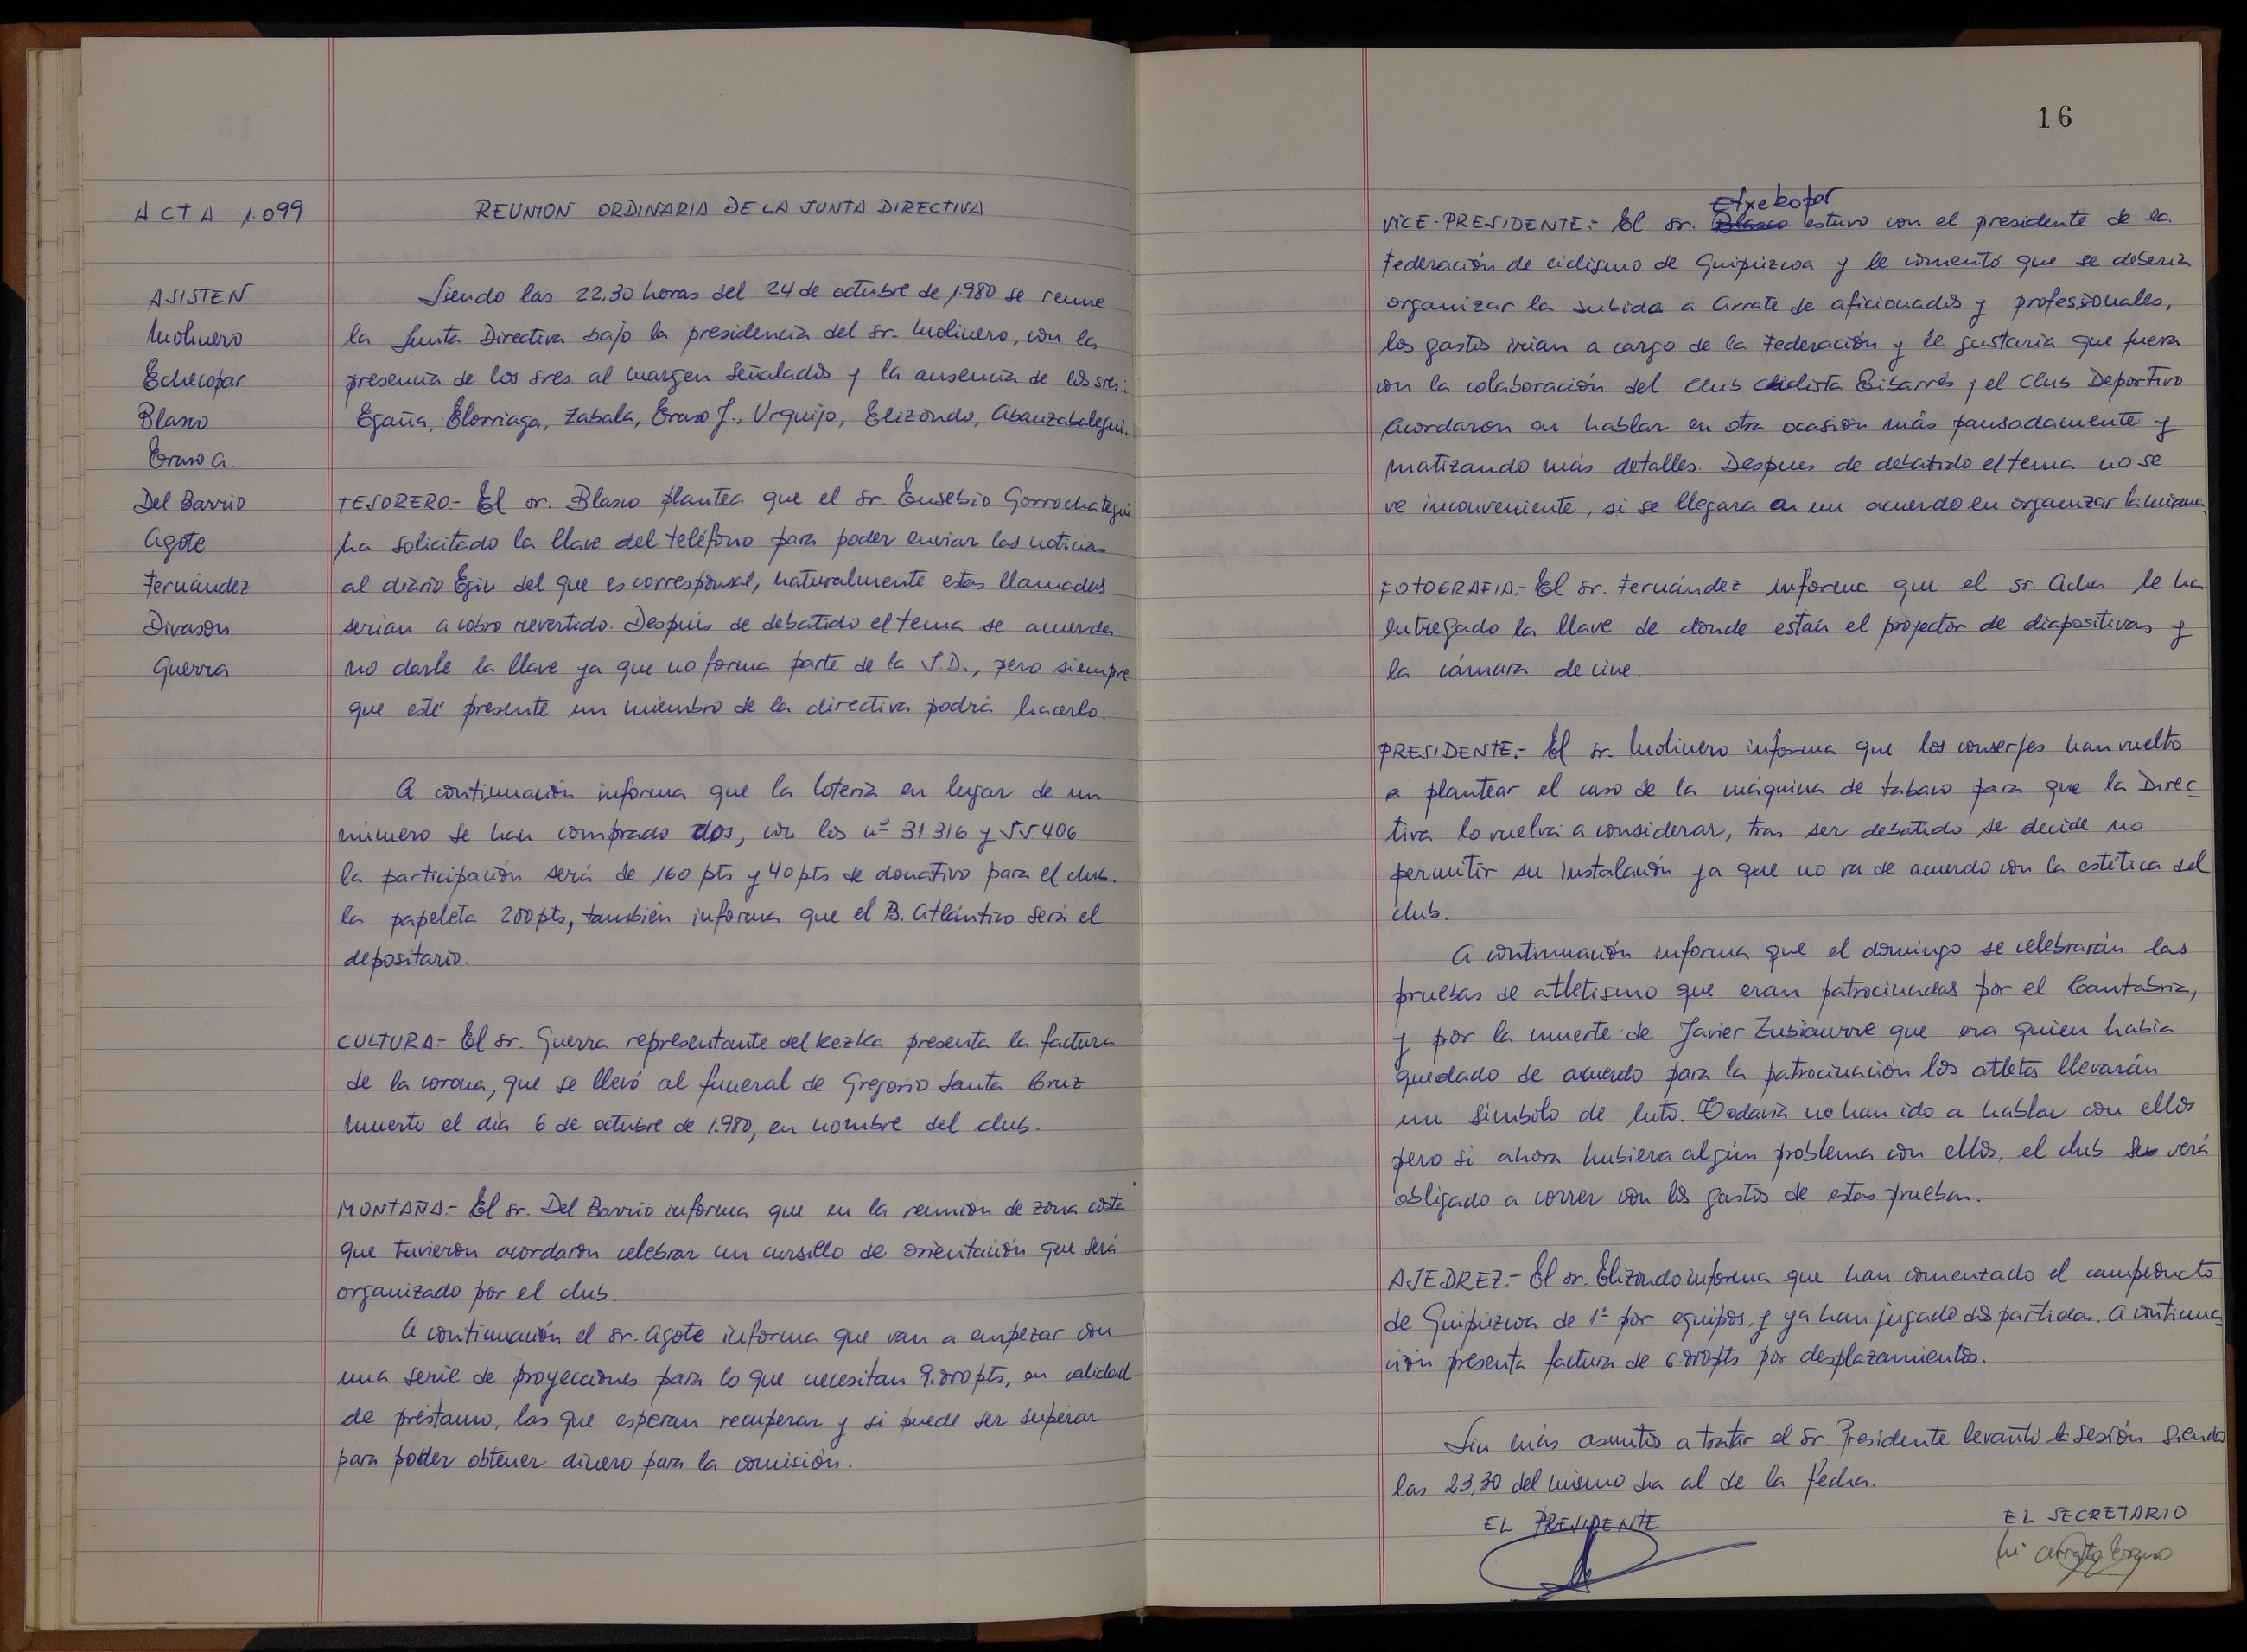 ACTA 1.099
REUNION ORDINARIA DE LA JUNTA DIRECTIVA
ASISTEN
Molinero
Echecopar
Blasco
Eraso A.
Del Barrio
Agote
Fernández
Divasón
Guerra
Siendo las 22,30 horas del 24 de octubre de 1.980 se reune
la Junta Directiva bajo la presidencia del sr. Molinero, con la
presencia de los sres al margen señalados y la ausencia de los sres:
Egaña, Elorriaga, Zabala, Eraso J., Urquijo, Elizondo, Abanzabalegui.
TESORERO.- El sr. Blasco plantea que el sr. Eusebio Gorrochategui
ha solicitado la llave del teléfono para poder enviar las noticias
al diario Egin del que es corresponsal, naturalmente estas llamadas
serian a cobro revertido. Después de debatido el tema se acuerda
no darle la llave ya que no forma parte de la J.D., pero siempre
que esté presente un miembro de la directiva podrá hacerlo.
A continuación informa que la lotería en lugar de un
número se han comprado dos, con los nº 31.316 y 55.406
la participación será de 160 pts y 40 pts de donativo para el club.
la papeleta 200 pts, también informa que el B. Atlántico será el
depositario.
CULTURA.- El sr. Guerra representante del Kezka presenta la factura
de la corona, que se llevó al funeral de Gregorio Santa Cruz
muerto el día 6 de octubre de 1.980, en nombre del club.
MONTAÑA.- El sr. Del Barrio informa que en la reunión de zona costa
que tuvieron acordaron celebrar un cursillo de orientación que será
organizado por el club.
A continuación el sr. Agote informa que van a empezar con
una serie de proyecciones para lo que necesitan 9.000 pts, en calidad
de préstamo, las que esperan recuperar y si puede ser superar
para poder obtener dinero para la comisión.
16
Etxekopar
VICE-PRESIDENTE:- El sr. Blasco estuvo con el presidente de la
Federación de ciclismo de Guipúzcoa y le comentó que se debería
organizar la subida a Arrate de aficionados y profesionales,
los gastos irian a cargo de la Federación y le gustaria que fuera
con la colaboración del Club Ciclista Eibarrés y el Club Deportivo
Acordaron en hablar en otra ocasión más pausadamente y
matizando más detalles. Despues de debatido el tema no se
ve inconveniente, si se llegara a un acuerdo en organizar la misma.
FOTOGRAFIA.- El sr. Fernández informa que el sr. Acha le ha
entregado la llave de donde están el proyector de diapositivas y
la cámara de cine.
PRESIDENTE.- El sr. Molinero informa que los conserjes han vuelto
a plantear el caso de la máquina de tabaco para que la Direc-
tiva lo vuelva a considerar, tras ser debatido se decide no
permitir su instalación ya que no va de acuerdo con la estética del
club.
A continuación informa que el domingo se celebrarán las
pruebas de atletismo que eran patrocinadas por el Cantabria,
y por la muerte de Javier Zubiaurre que era quien habia
quedado de acuerdo para la patrocinación los atletas llevarán
un símbolo de luto. Todavía no han ido a hablar con ellos
pero si ahora hubiera algún problema con ellos, el club se verá
obligado a correr con los gastos de estas pruebas.
AJEDREZ.- El sr. Elizondo informa que han comenzado el campeonato
de Guipúzcoa de 1ª por equipos, y ya han jugado dos partidas. A continua-
ción presenta factura de 6.000 pts por desplazamientos.
Sin más asuntos a tratar el sr. Presidente levantó la sesión siendo
las 23,30 del mismo dia al de la fecha.
EL PRESIDENTE
EL SECRETARIO